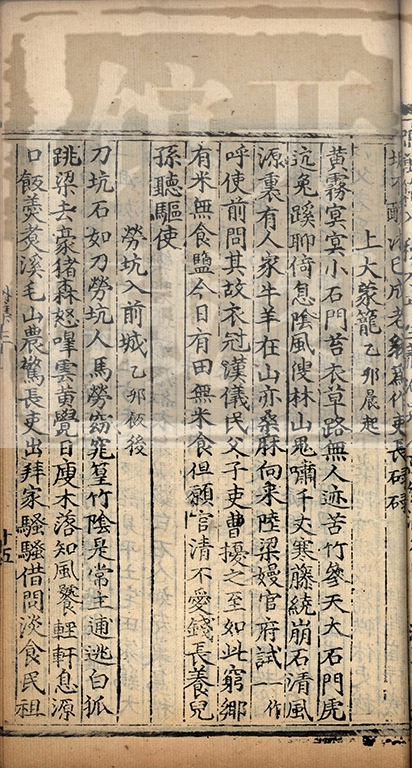 已成老翁為作吏長碌碌
上大蒙籠乙卯晨起
黃霧冥冥小石門苔衣草路無人迹苦竹參天大石門虎
迒兔蹊聊倚息陰風搜林山鬼嘯千丈寒藤繞崩石清風
源裏有人家牛羊在山亦桑麻向来陸梁嫚官府試一作
呼使前問其故衣冠漢儀民父子吏曹擾之至如此窮鄉
有米無食鹽今日有田無米食但願官清不愛錢長養兒
孫聽驅使
勞坑入前城乙卯飯後
刀坑石如刀勞坑人馬勞窈窕篁竹陰是常主逋逃白狐
跳梁去豪猪森怒嘷雲黃覺日瘦木落知風饕輕軒息源
口飯羹煑溪毛山農驚長吏出拜家騷騷借問淡食民祖
十五